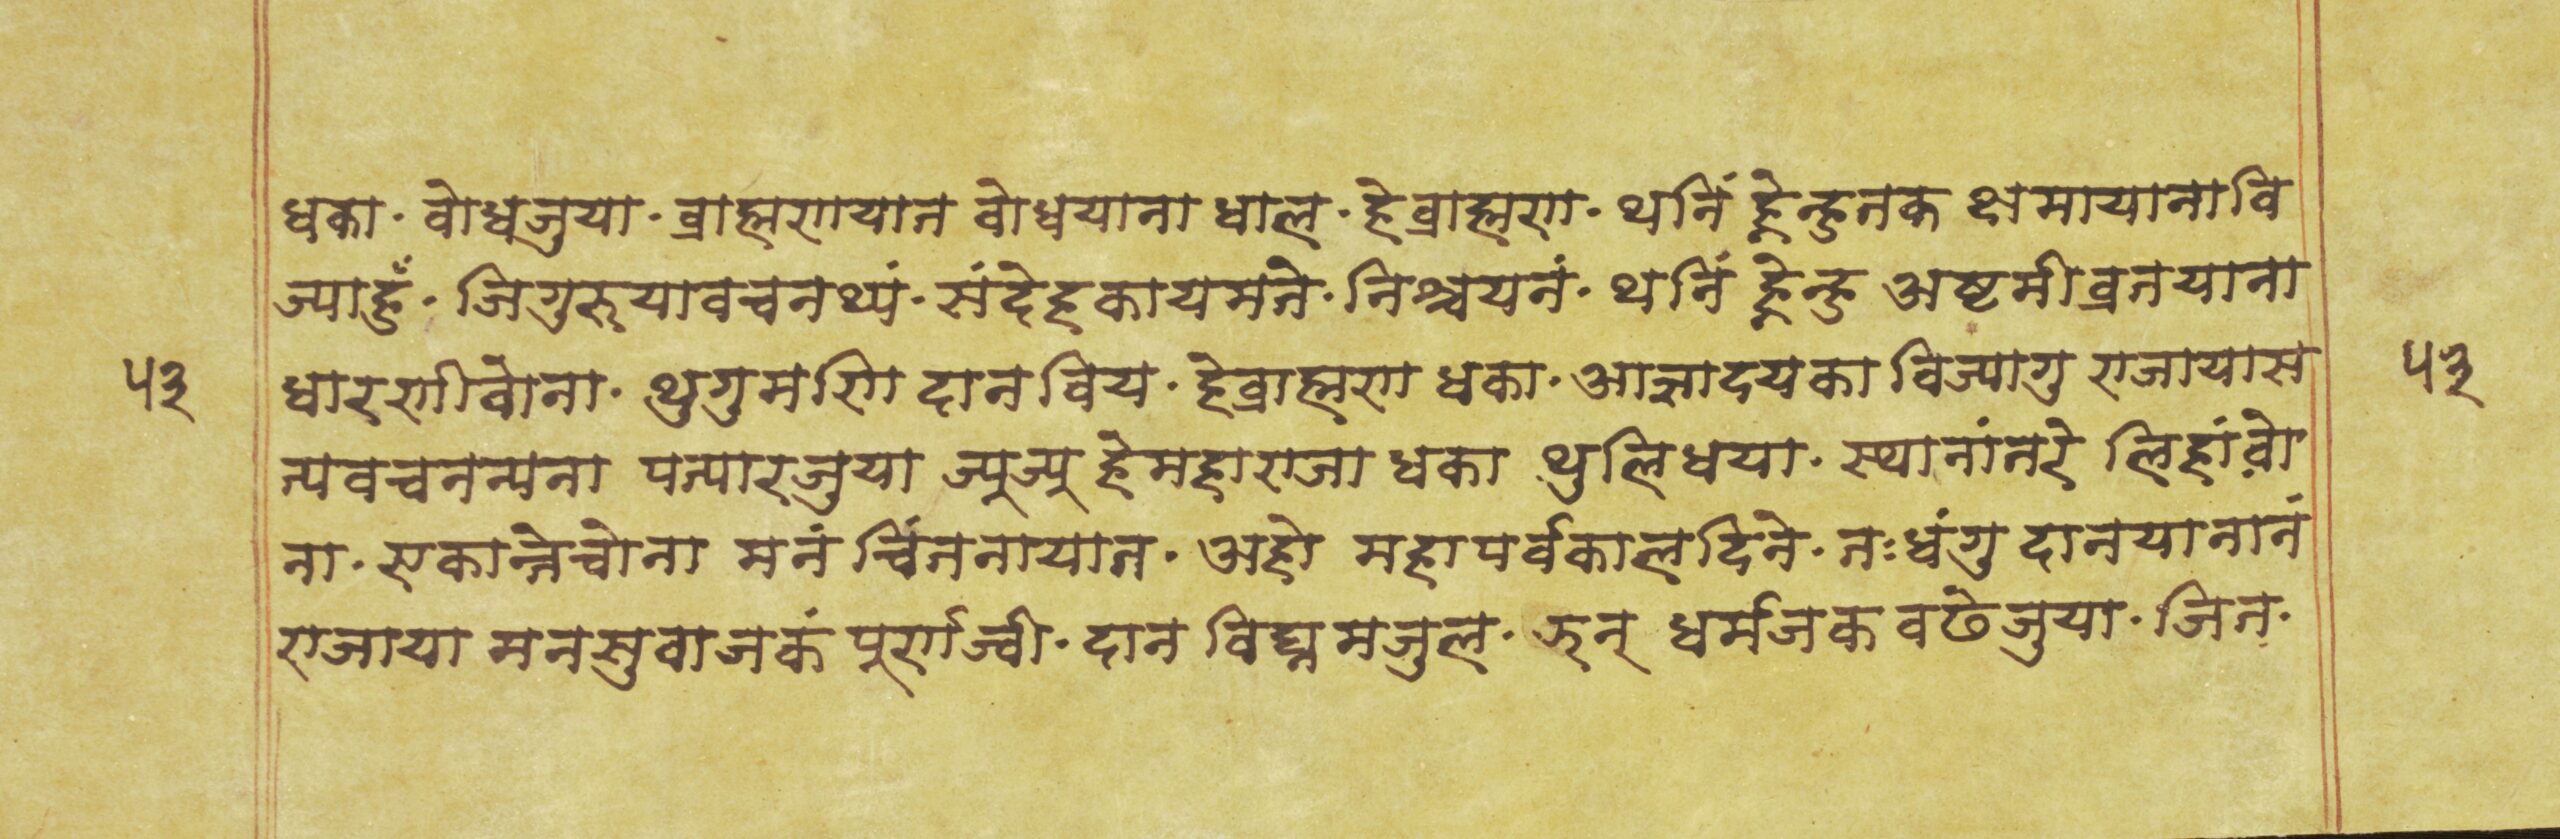 धका· वोधजुया· ब्राह्मणयात वोधयाना धाल· हेब्राह्मण· थनिं ह्नेन्हुतक क्षमायानावि
ज्याहुँ· जिगुरुयावचनथ्यं· संदेहकायमते· निश्चयनं· थनिं ह्नेन्हु अष्टमीव्रतयाना
५३ धारणीवोना· थुगुमणि दानविय· हेब्राह्मण धका· आज्ञादयका विज्यागु राजायास ५३
त्यवचनन्यना पत्यारजुया ज्यूज्यू हेमहाराजा धका थुलिधया· स्थानांतरे लिहांवो
ना· एकान्तेचोना मनं चिंतनायात· अहो महापर्वकालदिने· तःधंगु दानयानानं
राजाया मनसुवाजकं पूर्णज्वी· दान विघ्नमजुल· ऊन् धर्मजक वढेजुया· जित·